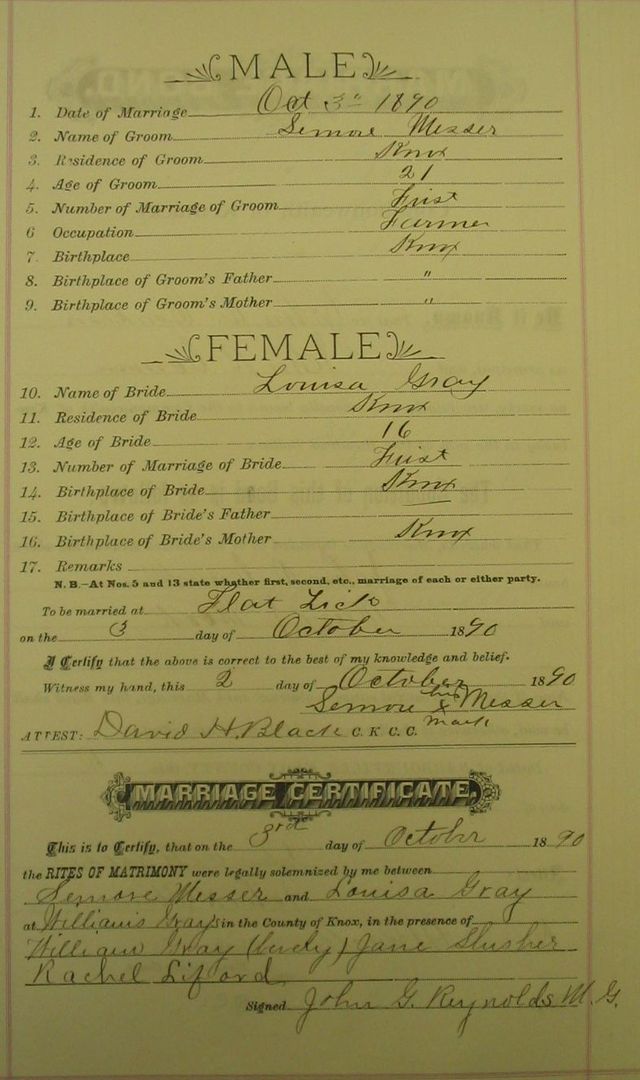 MALE
1. Date of Marriage Oct 3rd 1890
2. Name of Groom Semore Messer
3. Residence of Groom Knox
4. Age of Groom 21
5. Number of Marriage of Groom First
6 Occupation Farmer
7. Birthplace Knox
8. Birthplace of Groom's Father "
9. Birthplace of Groom's Mother "
FEMALE
10. Name of Bride Louisa Gray
11. Residence of Bride Knox
12. Age of Bride 16
13. Number of Marriage of Bride First
14. Birthplace of Bride Knox
15. Birthplace of Bride's Father —
16. Birthplace of Bride's Mother Knox
17. Remarks
N. B.—At Nos. 5 and 13 state whether first, second, etc., marriage of each or either party.
To be married at Flat Lick
on the 3 day of October 1890
I Certify that the above is correct to the best of my knowledge and belief.
Witness my hand, this 2 day of October 1890
Semore his X mark Messer
ATTEST: David H. Black C. K. C. C.
MARRIAGE CERTIFICATE.
This is to Certify, that on the 3rd day of October 1890
the RITES OF MATRIMONY were legally solemnized by me between
Semore Messer and Louisa Gray
at William Grays in the County of Knox, in the presence of
William Gray Jane Slusher
Rachel Liford
Signed John G. Reynolds M. G.